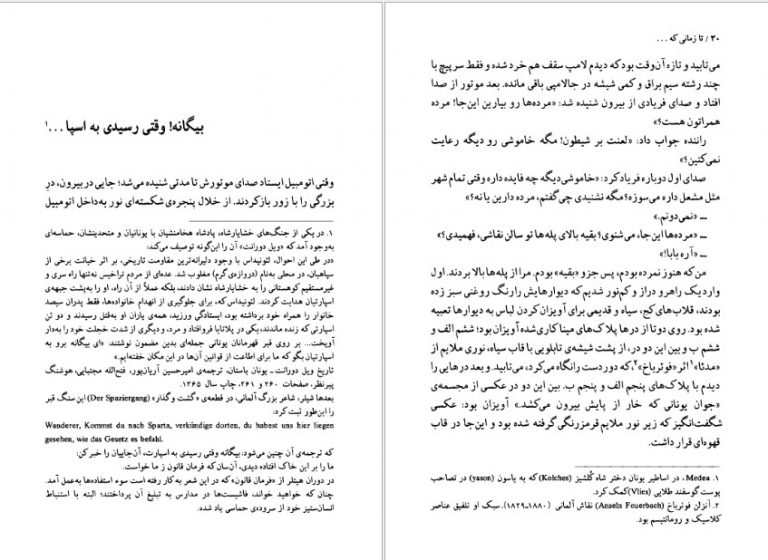 بیگانه! وقتی رسیدی به اسپا ...۱
وقتی اتومبیل ایستاد صدای موتورش تا مدتی شنیده می‌شد؛ جایی در بیرون، درِ
بزرگی را با زور بازکردند. از خلال پنجره‌ی شکسته‌ای نور به‌داخل اتومبیل
۱. در یکی از جنگ‌های خشایارشاه، پادشاه هخامنشیان با یونانیان و متحدینشان، حماسه‌ای
به‌وجود آمد که «ویل دورانت» آن را این‌گونه توصیف می‌کند:
«در طی این احوال، لئونیداس با وجود دلیرانه‌ترین مقاومت تاریخی، بر اثر خیانت برخی از
سپاهیان، در محلی به‌نام (دروازه‌ی گرم) مغلوب شد. عده‌ای از مردم تراخیس نه‌تنها راه سری و
غیرمستقیم کوهستانی را به خشایارشاه نشان دادند، بلکه عملاً از آن راه، او را به‌پشت جبهه‌ی
اسپارتیان هدایت کردند. لئونیداس که، برای جلوگیری از انهدام خانواده‌ها، فقط پدران سیصد
خانوار را همراه خود برداشته بود، ایستادگی ورزید، همه‌ی یاران او به‌قتل رسیدند و دو تن
اسپارتی که زنده ماندند، یکی در پلاتایا فروافتاد و مرد، و دیگری از شدت خجلت خود را به‌دار
آویخت... بر روی قبر قهرمانان یونانی جمله‌ای بدین مضمون نوشتند: «ای بیگانه برو به
اسپارتیان بگو که ما برای اطاعت از قوانین آن‌ها در این مکان خفته‌ایم.»
تاریخ ویل دورانت ـ یونان باستان، ترجمه‌ی امیرحسین آریان‌پور، فتح‌الله مجتبایی، هوشنگ
پیرنظر، صفحات ۲۶۰ و ۲۶۱، چاپ سال ۱۳۶۵.
بعدها شیلر، شاعر بزرگ آلمانی، در قطعه‌ی «گشت وگذار» (Der Spaziergang) این سنگ قبر
را این‌طور ثبت کرد:
Wanderer, Kommst da nach Sparta, verkündige dorten, du habest uns hier liegen
gesehen, wie das Gesetz es befahl.
که ترجمه‌ی آن چنین می‌شود: بیگانه وقتی رسیدی به اسپارت، آن‌جاییان را خبر کن:
ما را بر این خاک افتاده دیدی، آن‌سان که فرمان قانون ز ما خواست.
در دوران هیتلر از «فرمان قانون» که در این شعر به کار رفته است سوء استفاده‌ها به‌عمل آمد.
چنان که خواهید خواند، فاشیست‌ها در مدارس به تبلیغ آن پرداختند؛ البته با استنباط
انسان‌ستیز خود از سروده‌ی حماسی یاد شده.
۳۰ / تا زمانی که ...
می‌تابید و تازه آن‌وقت بود که دیدم لامپ سقف هم خرد شده و فقط سرپیچ با
چند رشته سیم براق و کمی شیشه در جالامپی باقی مانده. بعد موتور از صدا
افتاد و صدای فریادی از بیرون شنیده شد: «مرده‌ها رو بیارین این‌جا! مرده
همراتون هست؟»
راننده جواب داد: «لعنت بر شیطون! مگه خاموشی رو دیگه رعایت
نمی‌کنین؟»
صدای اول دوباره فریاد کرد: «خاموشی دیگه چه فایده داره وقتی تمام شهر
مثل مشعل داره می‌سوزه؟ مگه نشنیدی چی گفتم، مرده دارین یا نه؟»
ـ «نمی‌دونم.»
ـ «مرده‌ها این‌جا، می‌شنوی؟ بقیه بالای پله‌ها تو سالن نقاشی، فهمیدی؟»
ـ «آره بابا!»
من که هنوز نمرده بودم، پس جزو «بقیه» بودم. مرا از پله‌ها بالا بردند. اول
وارد یک راهرو دراز و کم‌نور شدیم که دیوارهایش را رنگ روغنی سبز زده
بودند، قلاب‌های کج، سیاه و قدیمی برای آویزان کردن لباس به دیوارها تعبیه
شده بود. روی دوتا از درها پلاک‌های میناکاری‌شده آویزان بود؛ ششم الف و
ششم ب و بین این دو در، از پشت شیشه‌ی تابلویی با قاب سیاه، نوری ملایم از
«مدئا»۱ اثر «فوئرباخ»۲، که دوردست رانگاه می‌کرد، می‌تابید. و بعد درهایی را
دیدم با پلاک‌های پنجم الف و پنجم ب. بین این دو در عکسی از مجسمه‌ی
«جوان یونانی که خار از پایش بیرون می‌کشد.» آویزان بود: عکسی
شگفت‌انگیز که زیر نور ملایم قرمزرنگی گرفته شده بود و این‌جا در قاب
قهوه‌ای قرار داشت.
۱. Medea، در اساطیر یونان دختر شاه کُلشیز (Kolches) که به یاسون (yason) در تصاحب
پوست گوسفند طلایی (Vlies) کمک کرد.
۲. آنزلن فوئرباخ (Anseln Feuerbach) نقاش آلمانی (۱۸۸۰ـ۱۸۲۹). سبک او تلفیق عناصر
کلاسیک و رومانتیسم بود.